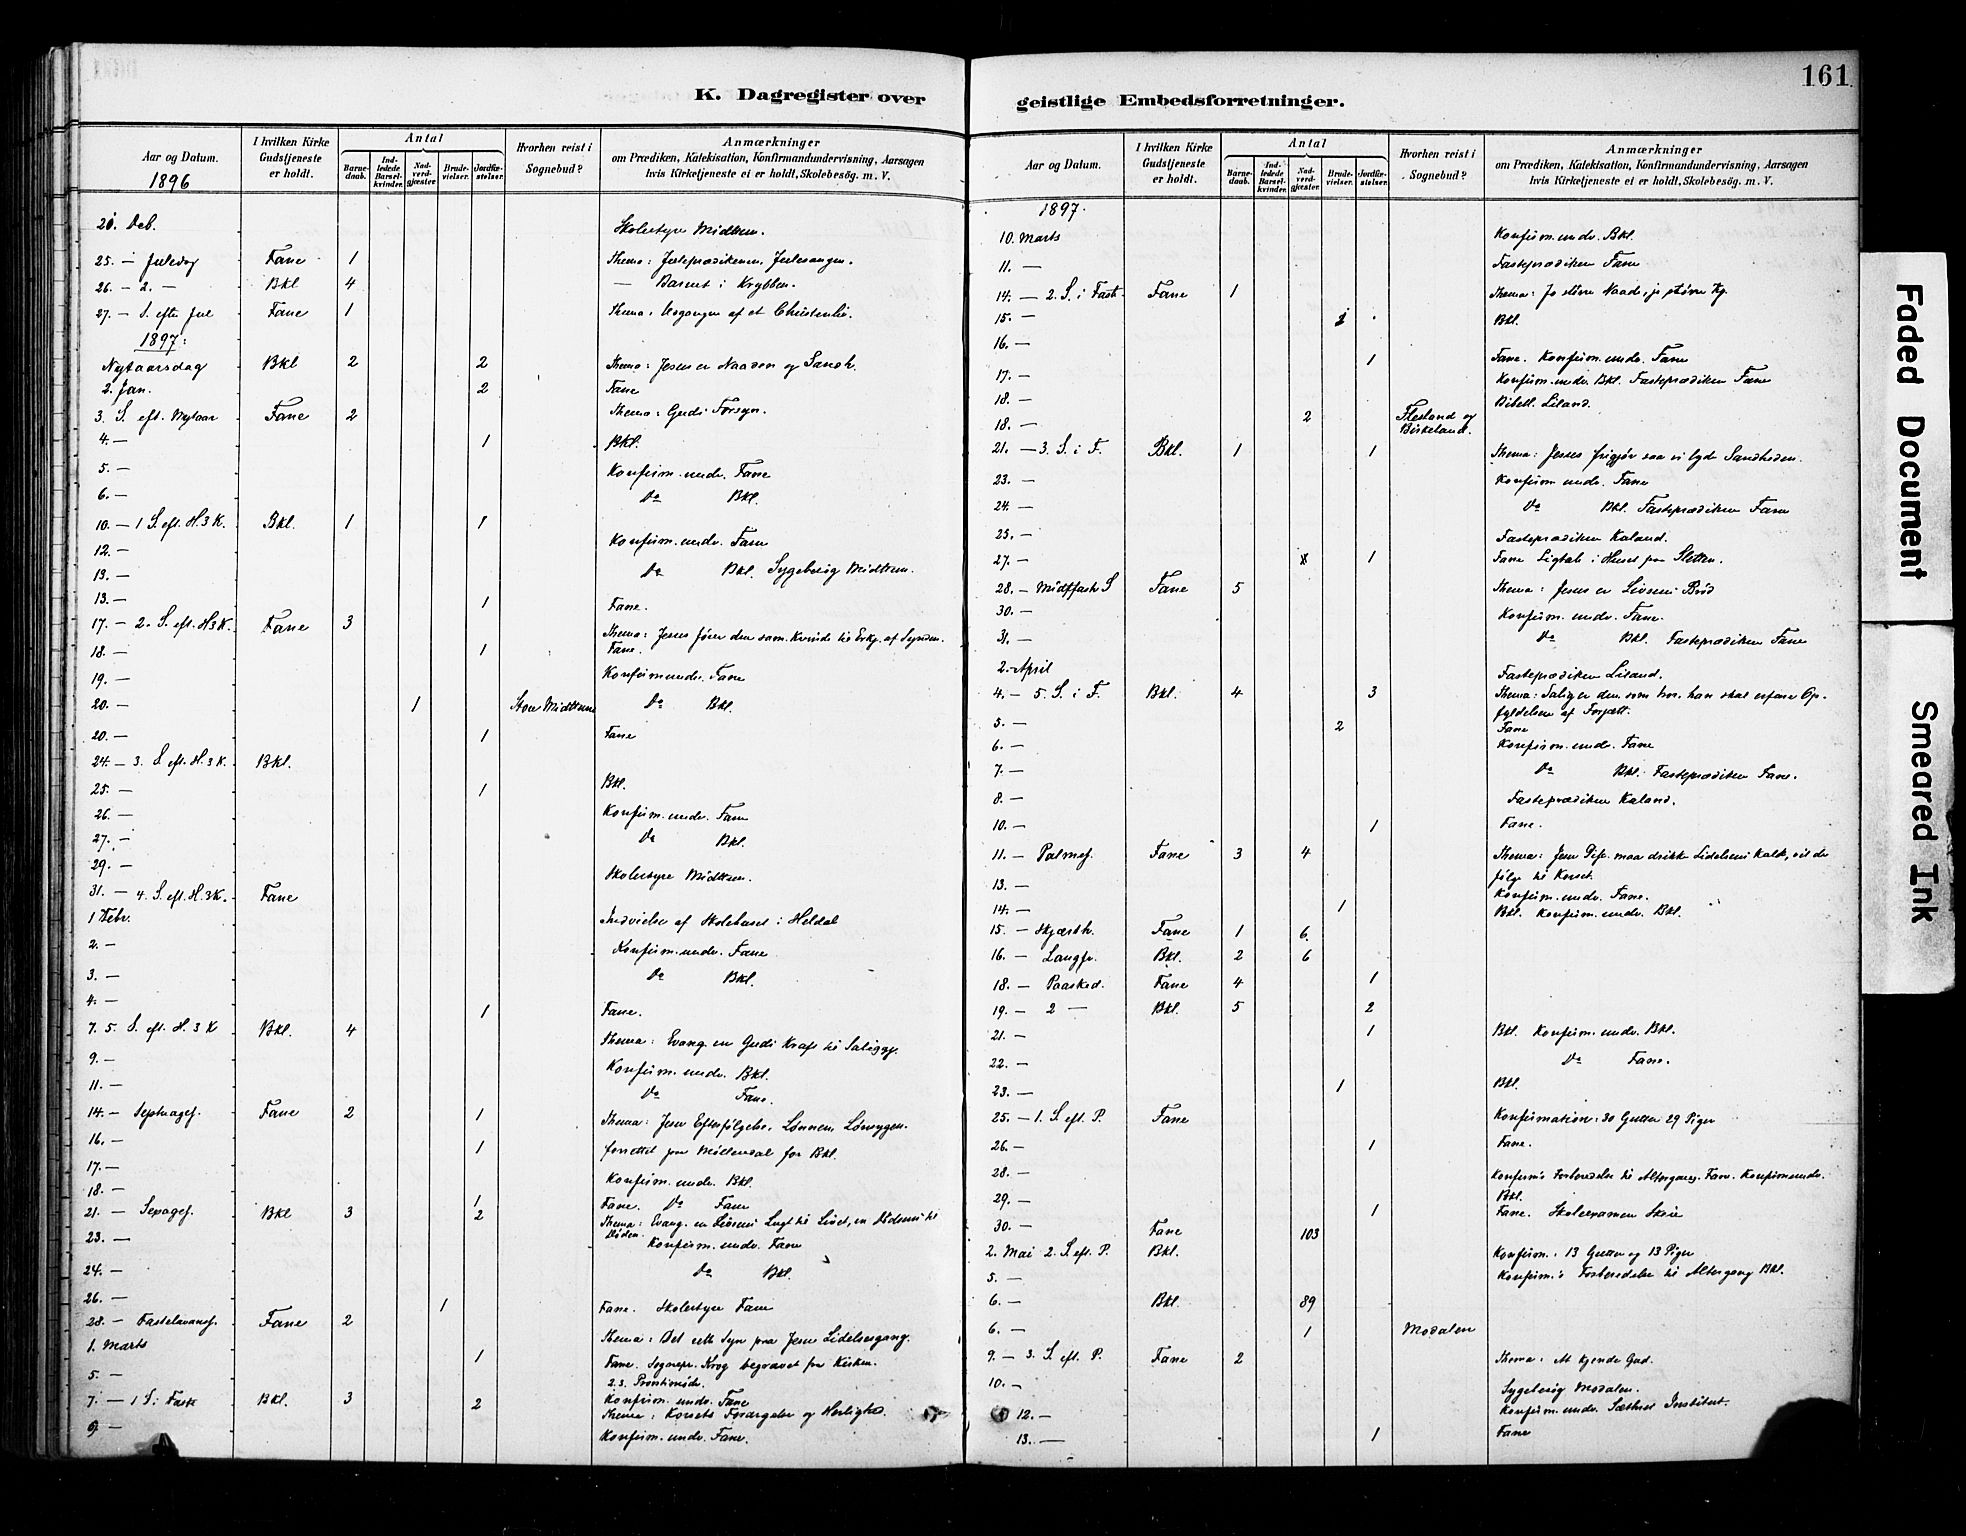 161
K. Dagregister over geistlige Embedsforretninger.
Aar og Datum.
1896
I hvilken Kirke Gudstjeneste er holdt.
Antal
Barnedaab.
Indledede Barselkvinder.
Nadverdgjæster
Brudevielser.
Jordfæstelser.
Hvorhen reist i Sognebud?
Anmærkninger
om Prædiken, Katekisation, Konfirmandundervisning, Aarsagen
hvis Kirketjeneste ei er holdt, Skolebesøg. m. V.
20. Deb. Skolestyre Midttun.
25. — Juledag Fane 1 Thema: Juleprædikenen, Julesangen.
26. — 2. — Bkl 4 — Barnet i Krybben.
27. — S. efter Jul Fane 1 Thema: af et Christenliv.
1897:
Nytaarsdag Bkl 2 2 Thema: Jesus er Naaden og Sandh.
2. Jan. 2 Fane
3. S. eft. Nytaar Fane 2 Thema: Guds Forsyn.
4. — 1 Bkl.
5. — Konfirm. undv. Fane
6. — Do Bkl.
10. — 1 S. eft. H. 3 K. Bkl. 1 1
12. — Konfirm. undv. Fane
13. — Do Bkl. Sygebesøg Midttun.
13. — 1 Fane.
17. — 2. S. eft. H3K. Fane 3 Thema: Jesus fører den sam. Kvinde til Erkj. af Synden.
18. — 1 Fane.
19. — Konfirm undv. Fane
20. — 1 Store Midttun Do Bkl.
20. — 1 Fane
24. — 3. S. eft. H. 3 K. Bkl.
25. — 1 Bkl.
26. — Konfirm. undv. Fane
27. — Do Bkl.
29. — Skolestyre Midttun.
31. — 4. S. eft. H. 3K. Fane
1 Febr. Indvielse af Skolehuset i Heldal
2. — Konfirm. undv. Fane
3. — Do Bkl.
4. — 1 Fane.
7. 5. S. eft. H. 3 K Bkl. 4 Thema: Evang. en Guds Kraft til Saliggj.
9. — Konfirm. undv. Bkl.
11. — Do Fane.
14. — Septuages. Fane 2 1 Thema: Jesu Efterfølgelse, Lønnen, Lønsygen.
16. — 1 forrettet paa Møllendal for Bkl.
17. — Konfirm. undv. Bkl.
18. — 1 Fane. Do Fane
21. — Sexages. Bkl 3 2 Thema: Evang. en Livsens Lugt til Livet, en Dødsens til Døden.
23. — Konfirm. undv. Fane
24. — Do Bkl.
26. — 1 Fane. Skolestyre Fane
28. — Fastelavnss. Fane 2 Thema: Det rette Syn paa Jesu Lidelsesgang.
1. Marts 1 Fane. Sognepr. Krog begravet fra Kirken.
2.3. Provstimøde.
5. — Konfirm. undv. Fane
7. — 1 S. i Faste Bkl. 3 2 Thema: Korsets Forargelse og Herlighed.
9. — Konfirm. undv. Fane.
Aar og Datum.
I hvilken Kirke Gudstjeneste er holdt.
Antal
Barnedaab.
Indledede Barselkvinder.
Nadverdgjæster
Brudevielser.
Jordfæstelser.
Hvorhen reist i Sognebud?
Anmærkninger
om Prædiken, Katekisation, Konfirmandundervisning, Aarsagen
hvis Kirketjeneste ei er holdt, Skolebesøg. m. V.
1897.
10. Marts Konfirm. undv. Bkl.
11. — Fasteprædiken Fane
14. — 2. S. i Fast. Fane 1 Thema: Jo større Naad, jo større
15. — Bkl.
16. — 1 Fane. Konfirm. undv. Fane
17. — Konfirm. undv. Bkl. Fasteprædiken Fane
18. — Bibell. Liland.
18. — 2 Flesland og Birkeland.
21. — 3. S. i F. Bkl. 1 1 Thema: Jesus frigjør saa vi lyde Sandheden.
23. — Konfirm undv. Fane
24. — Do Bkl. Fasteprædiken Fane
25. — Fasteprædiken Kaland.
27. — 1 Fane Ligtale i Huset paa Sletten.
28. — Midtfaste S Fane 5 Thema: Jesus er Livsens Brød
30. — Konfirm. undv. Fane.
31. — Do Bkl. Fasteprædiken Fane
2. April Fasteprædiken Liland.
4. — 5. S. i F. Bkl. 4 3 Thema: Salig er den, som tror. han skal erfare Opfyldelsen af Forjætt.
5. — 2 Fane
6. — Konfirm. undv. Fane
7. — Do Bkl. Fasteprædiken Fane.
8. — Fasteprædiken Kaland.
10. — 1 Fane.
11. — Palmes. Fane 3 4 Thema: Jesu Disc. maa drikke Lidelsens Kalk, vil de følge til Korset.
13. — Konfirm. undv. Fane.
14. — 1 Bkl. Konfirm. undv. Bkl.
15. — Skjærth. Fane 1 6.
16. — Langfr. Bkl. 2 6
18. — Paasked. Fane 4 1
19. — 2 — Bkl. 5 2
21. — 1 Bkl. Konfirm. undv. Bkl.
22. — Do Fane.
23. — 1 Bkl.
25. — 1. S. eft. P. Fane Konfirmation: 30 Gutter 29 Piger
26. — 1 Fane.
28. — Konfirm's Forberedelse til Altergang. Fane. Konfirm undv.
29. — Bkl.
1 Fane. Skoleexamen Skeie
30. — Fane 103
2. Mai 2. S. eft. P. Bkl. Konfirm.: 13 Gutter og 13 Piger
5. — Konfirm.'s Forberedelse til Altergang Bkl.
6. — Bkl. 89
6. — 1 Modalen
9. — 3. S. eft. P. Fane 2 Thema: At kjende Gud.
10. — Sygebesøg Modalen.
12. — Konfirm. undv. Institut.
13. — 1 Fane
Faded Document
Smeared Ink